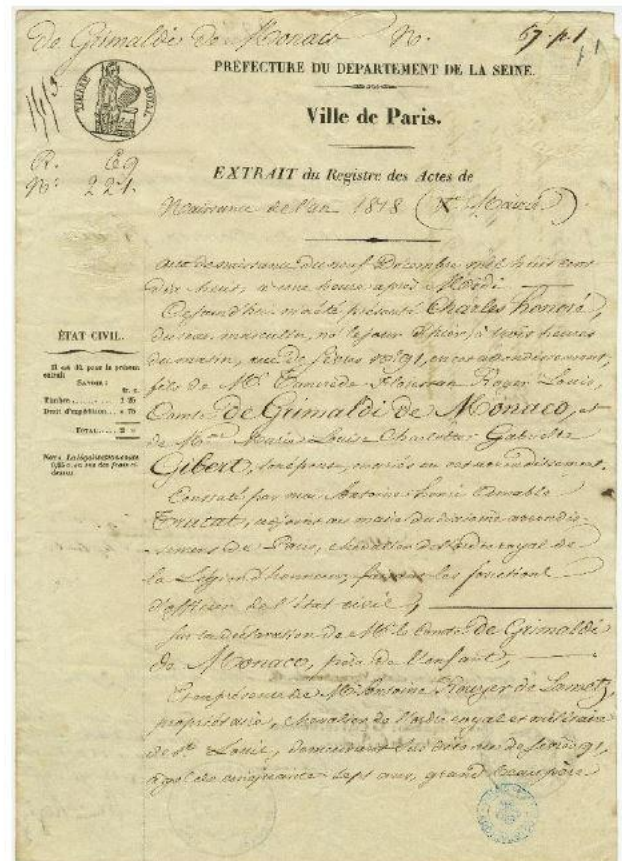 de Grimaldi de Monaco N.
67. p 1
PRÉFECTURE DU DÉPARTEMENT DE LA SEINE.
TIMBRE ROYAL
Ville de Paris.
R. 69
No. 221.
EXTRAIT du Registre des Actes de
Naissance de l'an 1818 (Xe Mairie)
acte de naissance du neuf Décembre mil huit cent
dix huit, à une heure après Midi
Cejourd'hui m'a été présenté Charles honoré,
du sexe masculin, né le jour d'hier à trois heures
du matin, rue de Sèvres no. 91, en cet arrondissement,
fils de Mr. Tancrède Florestan Roger Louis,
Comte de Grimaldi de Monaco, et
de Mme. Marie Louise Charlotte Gabrielle
Gibert, son épouse, mariés en cet arrondissement.
Constaté par moi Antoine Aimable
Trutat, adjoint au maire du dixième arrondis-
sement de Paris, chevalier de l'ordre royal de
la Légion d'honneur, faisant les fonctions
d'officier de l'état civil,
Sur la déclaration de Mr. le Comte de Grimaldi
de Monaco, père de l'enfant,
Et en présence de Mr. Antoine Rouyer de Lametz,
propriétaire, chevalier de l'ordre royal et militaire
de St. Louis, demeurant rue de Sèvres no 91,
âgé de cinquante sept ans, grand beau père
ÉTAT CIVIL.
Il est dû pour le présent
extrait
SAVOIR :
fr. c.
Timbre 1 25
Droit d'expédition » 75
TOTAL 2 »
NOTA. La légalisation coûte